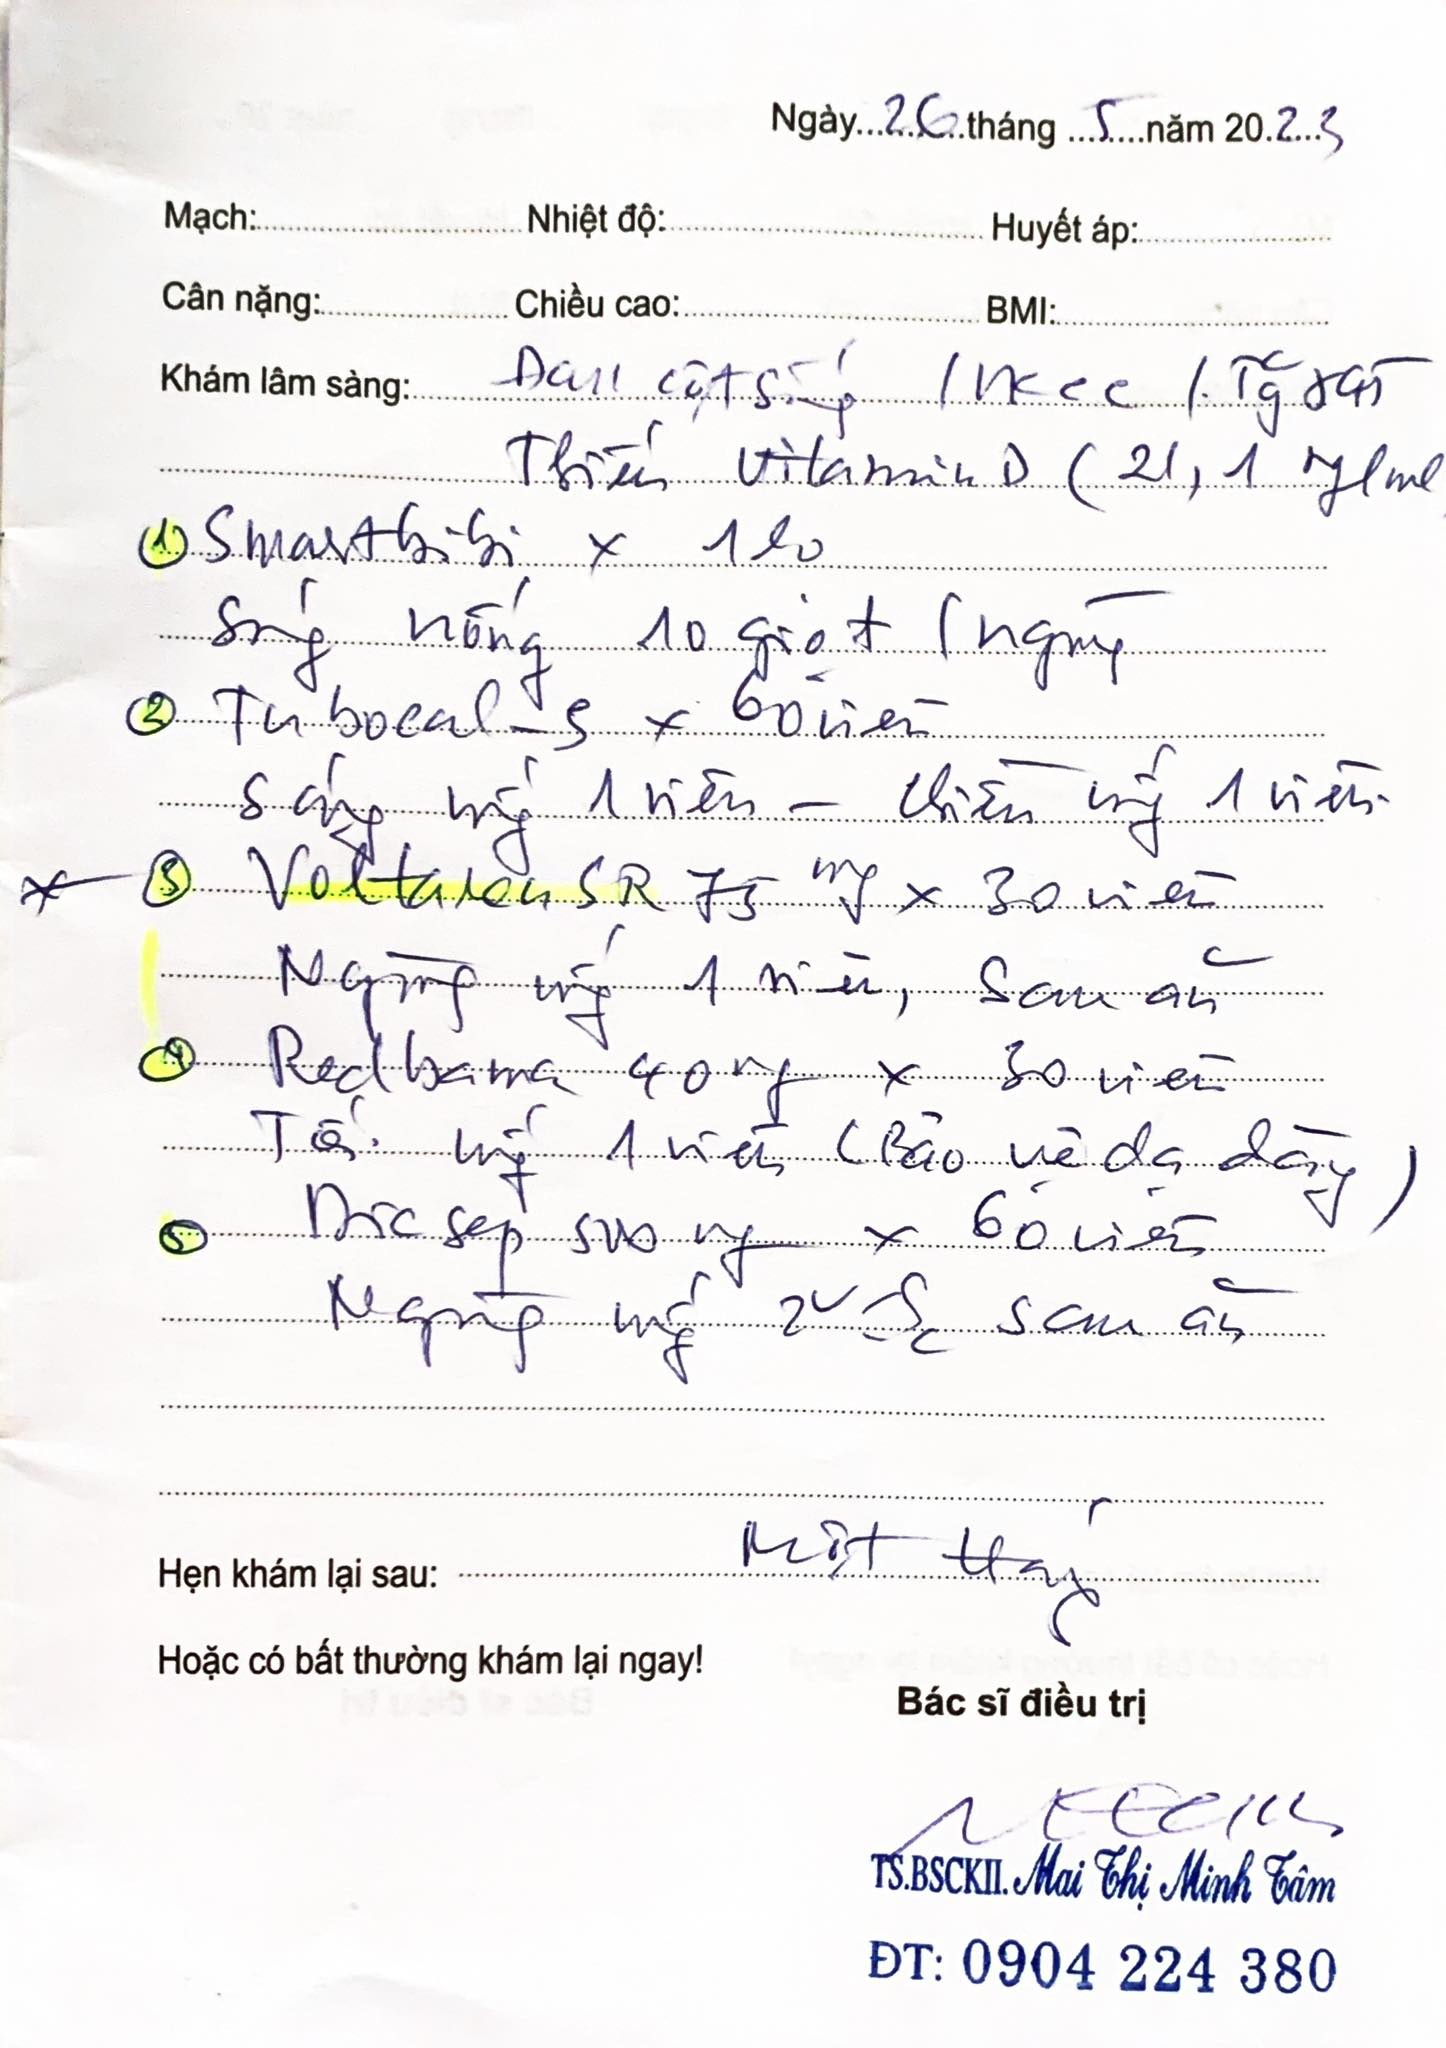 Ngày...26...tháng ...5...năm 20.23
Mạch: Nhiệt độ: Huyết áp:
Cân nặng: Chiều cao: BMI:
Khám lâm sàng: Đau cột sống / VKCC /
Thiếu vitamin D (21,1 ng/ml
① Smartbibi x 1 lọ
Sáng uống 10 giọt / ngày
② Turbocal-S x 60 viên
Sáng uống 1 viên – chiều uống 1 viên
③ Voltaren SR 75 mg x 30 viên
Ngày uống 1 viên, sau ăn
④ Redbama 40 mg x 30 viên
Tối uống 1 viên (Bảo vệ dạ dày)
⑤ Dicsep 500 mg x 60 viên
Ngày uống 2v sau ăn
Hẹn khám lại sau: Một tháng
Hoặc có bất thường khám lại ngay!
Bác sĩ điều trị
TS.BSCKII. Mai Thị Minh Tâm
ĐT: 0904 224 380